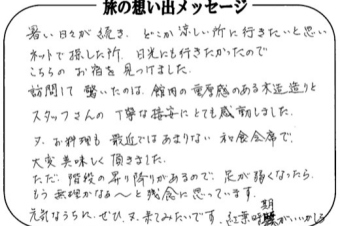 旅の想い出メッセージ
暑い日々が続き、どこか涼しい所に行きたいと思い
ネットで探した所、日光にも行きたかったので
こちらのお宿を見つけました。
訪問して驚いたのは、館内の重厚感のある木造造りと
スタッフさんの丁寧な接客にとても感動しました。
又、お料理も最近ではあまりない和食会席で、
大変美味しく頂きました。
ただ、階段の昇り降りがあるので、足が弱くなったら
もう無理かなる〜と残念に思っています。
元気なうちに、ぜひ、又来てみたいです。紅葉時期